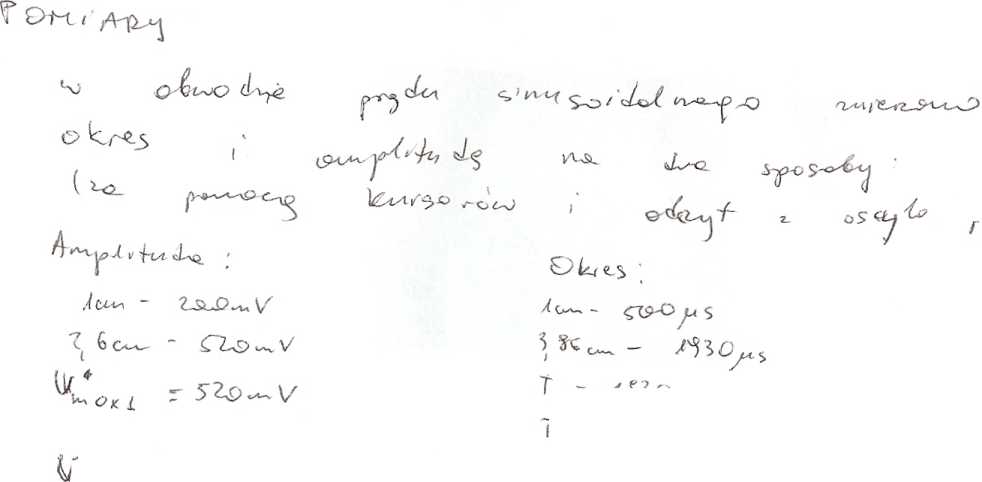 POMIARY
w obwodzie prądu sinusoidalnego mierzono
okres i amplitudę na dwa sposoby:
(za pomocą kursorów i odczyt z oscylo
Amplituda:
1cm - 200mV
2,6cm - 520mV
U*max1 = 520mV
Okres:
1cm - 500μs
3,86cm - 1930μs
T -
T